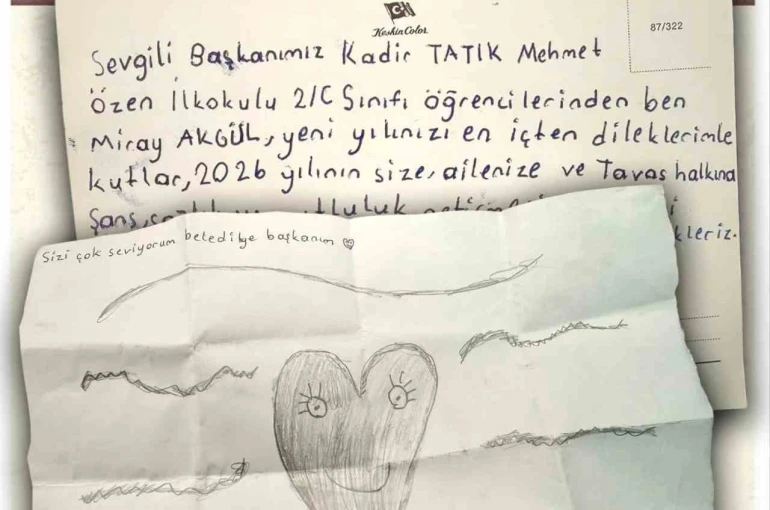 KeskinColor
87/322
Sevgili Başkanımız Kadir TATIK Mehmet
Özen İlkokulu 2/C Sınıfı öğrencilerinden ben
Miray AKGÜL, yeni yılınızı en içten dileklerimle
kutlar, 2026 yılının size, ailenize ve Tavas halkına
Şans,
kleriz.
Sizi çok seviyorum belediye başkanım